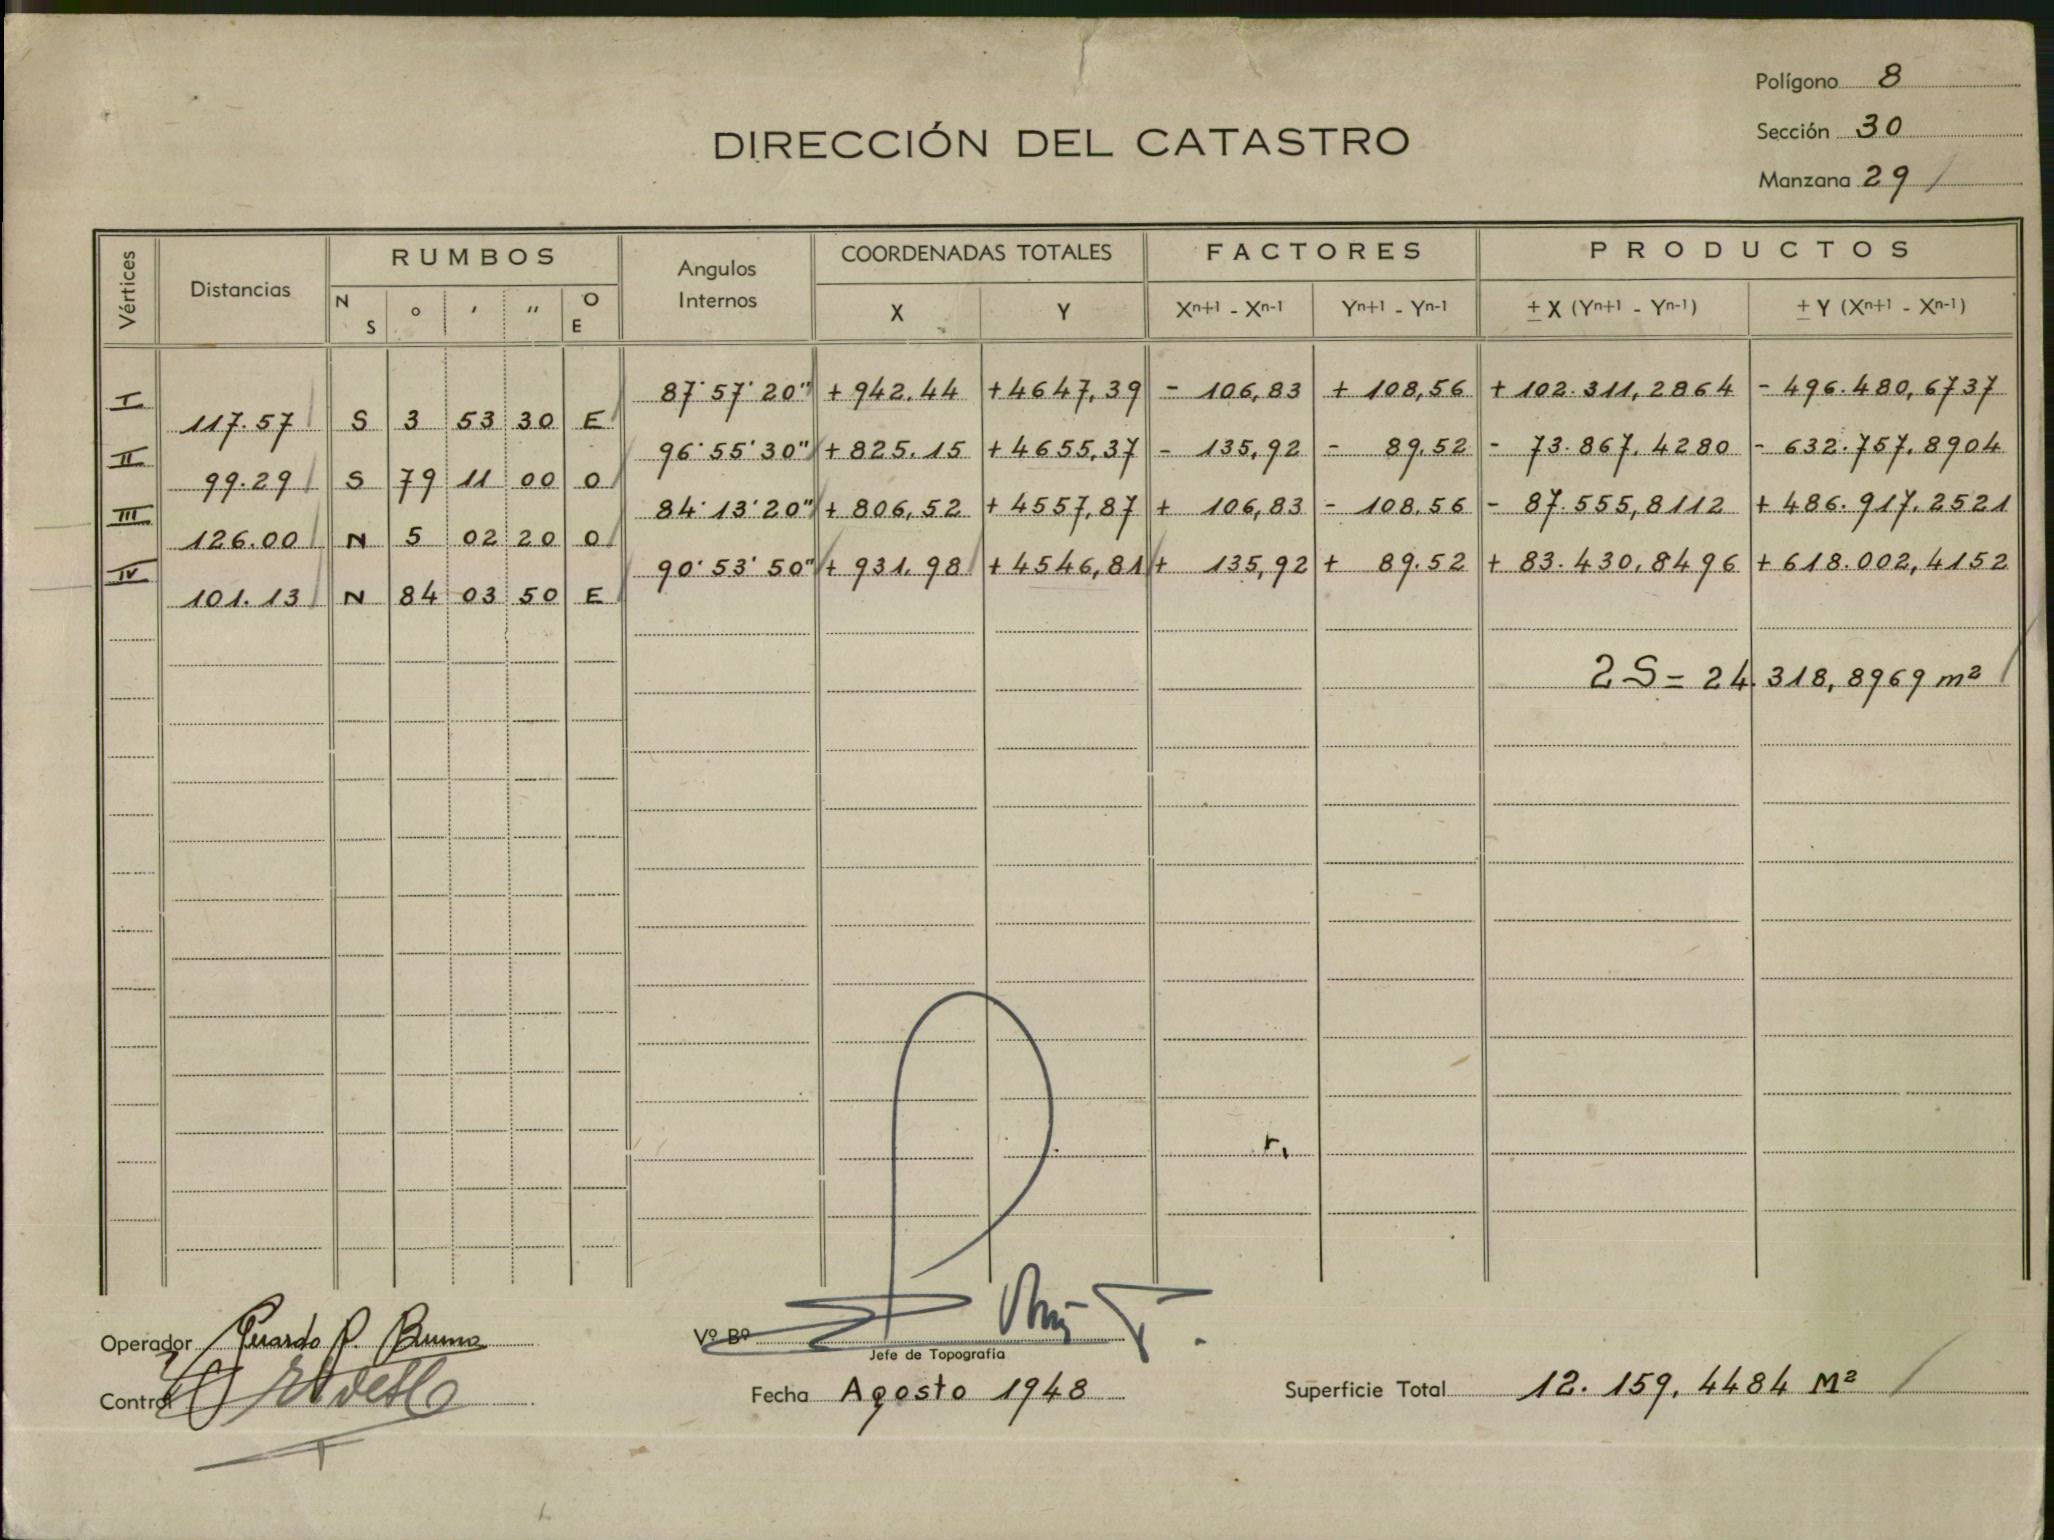 Polígono 8
Sección 30
Manzana 29
DIRECCIÓN DEL CATASTRO
Vértices Distancias RUMBOS Angulos Internos COORDENADAS TOTALES FACTORES PRODUCTOS
N S ° ′ ″ O E X Y Xn+1 - Xn-1 Yn+1 - Yn-1 ± X (Yn+1 - Yn-1) ± Y (Xn+1 - Xn-1)
I 87°57'20" +942.44 +4647,39 - 106,83 + 108,56 +102.311,2864 - 496.480,6737
117.57 S 3 53 30 E
II 96°55'30" +825.15 +4655,37 - 135,92 - 89.52 - 73.867.4280 - 632.757.8904
99.29 S 79 11 00 O
III 84°13'20" + 806,52 + 4557,87 + 106,83 - 108.56 - 87.555,8112 + 486.917.2521
126.00 N 5 02 20 O
IV 90°53'50" + 931.98 + 4546,81 + 135,92 + 89.52 + 83.430,8496 + 618.002,4152
101.13 N 84 03 50 E
2S = 24.318,8969 m²
Operador
Vº Bº
Jefe de Topografía
Control
Fecha Agosto 1948
Superficie Total 12.159,4484 M²